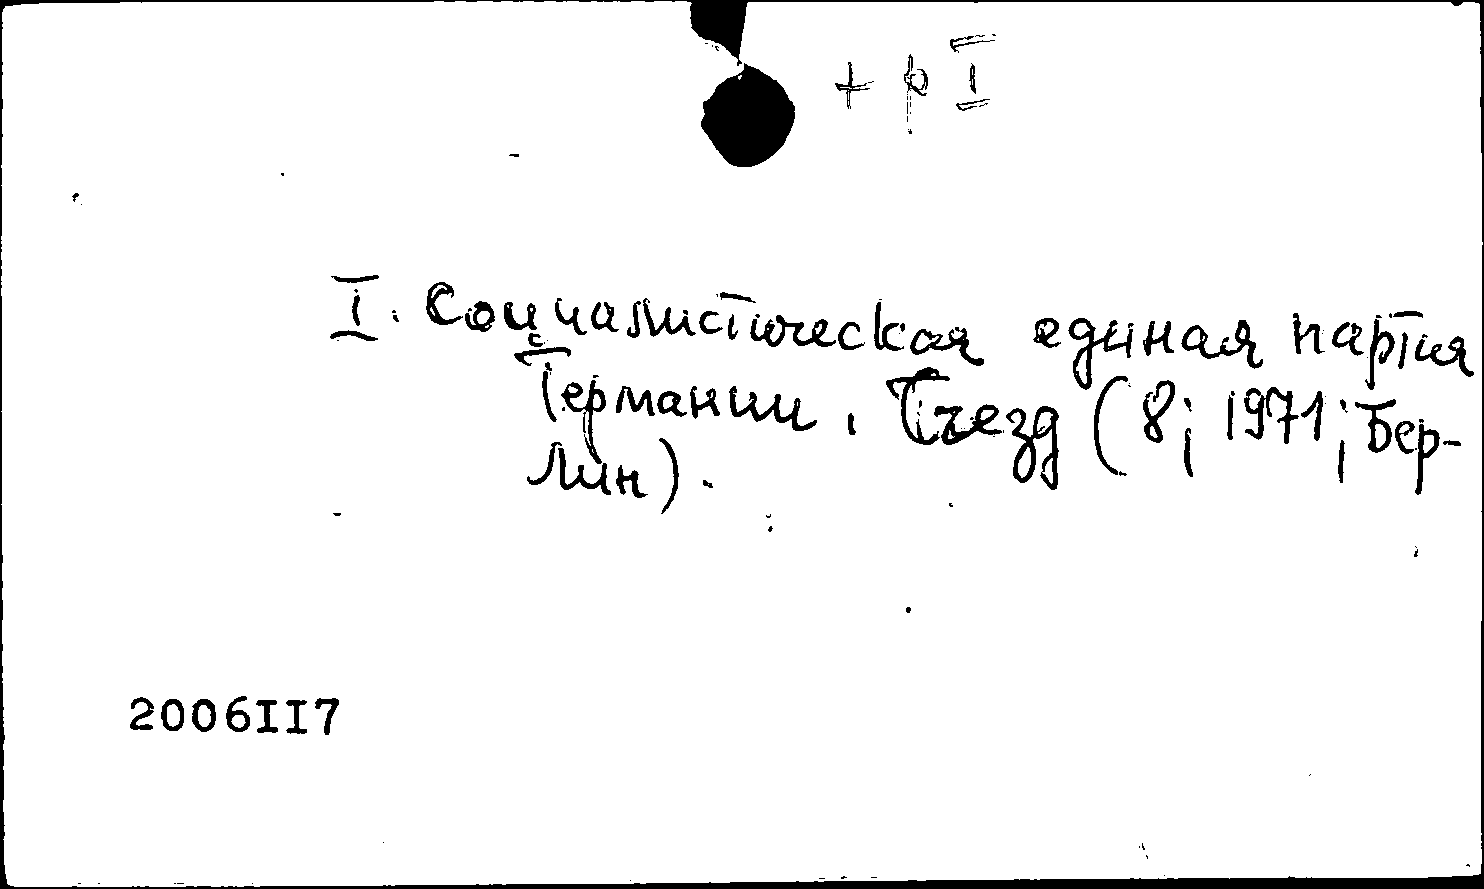 + р I
I. Социалистическая единая партия
Германии. Съезд (8; 1971; Бер-
лин).
2006II7